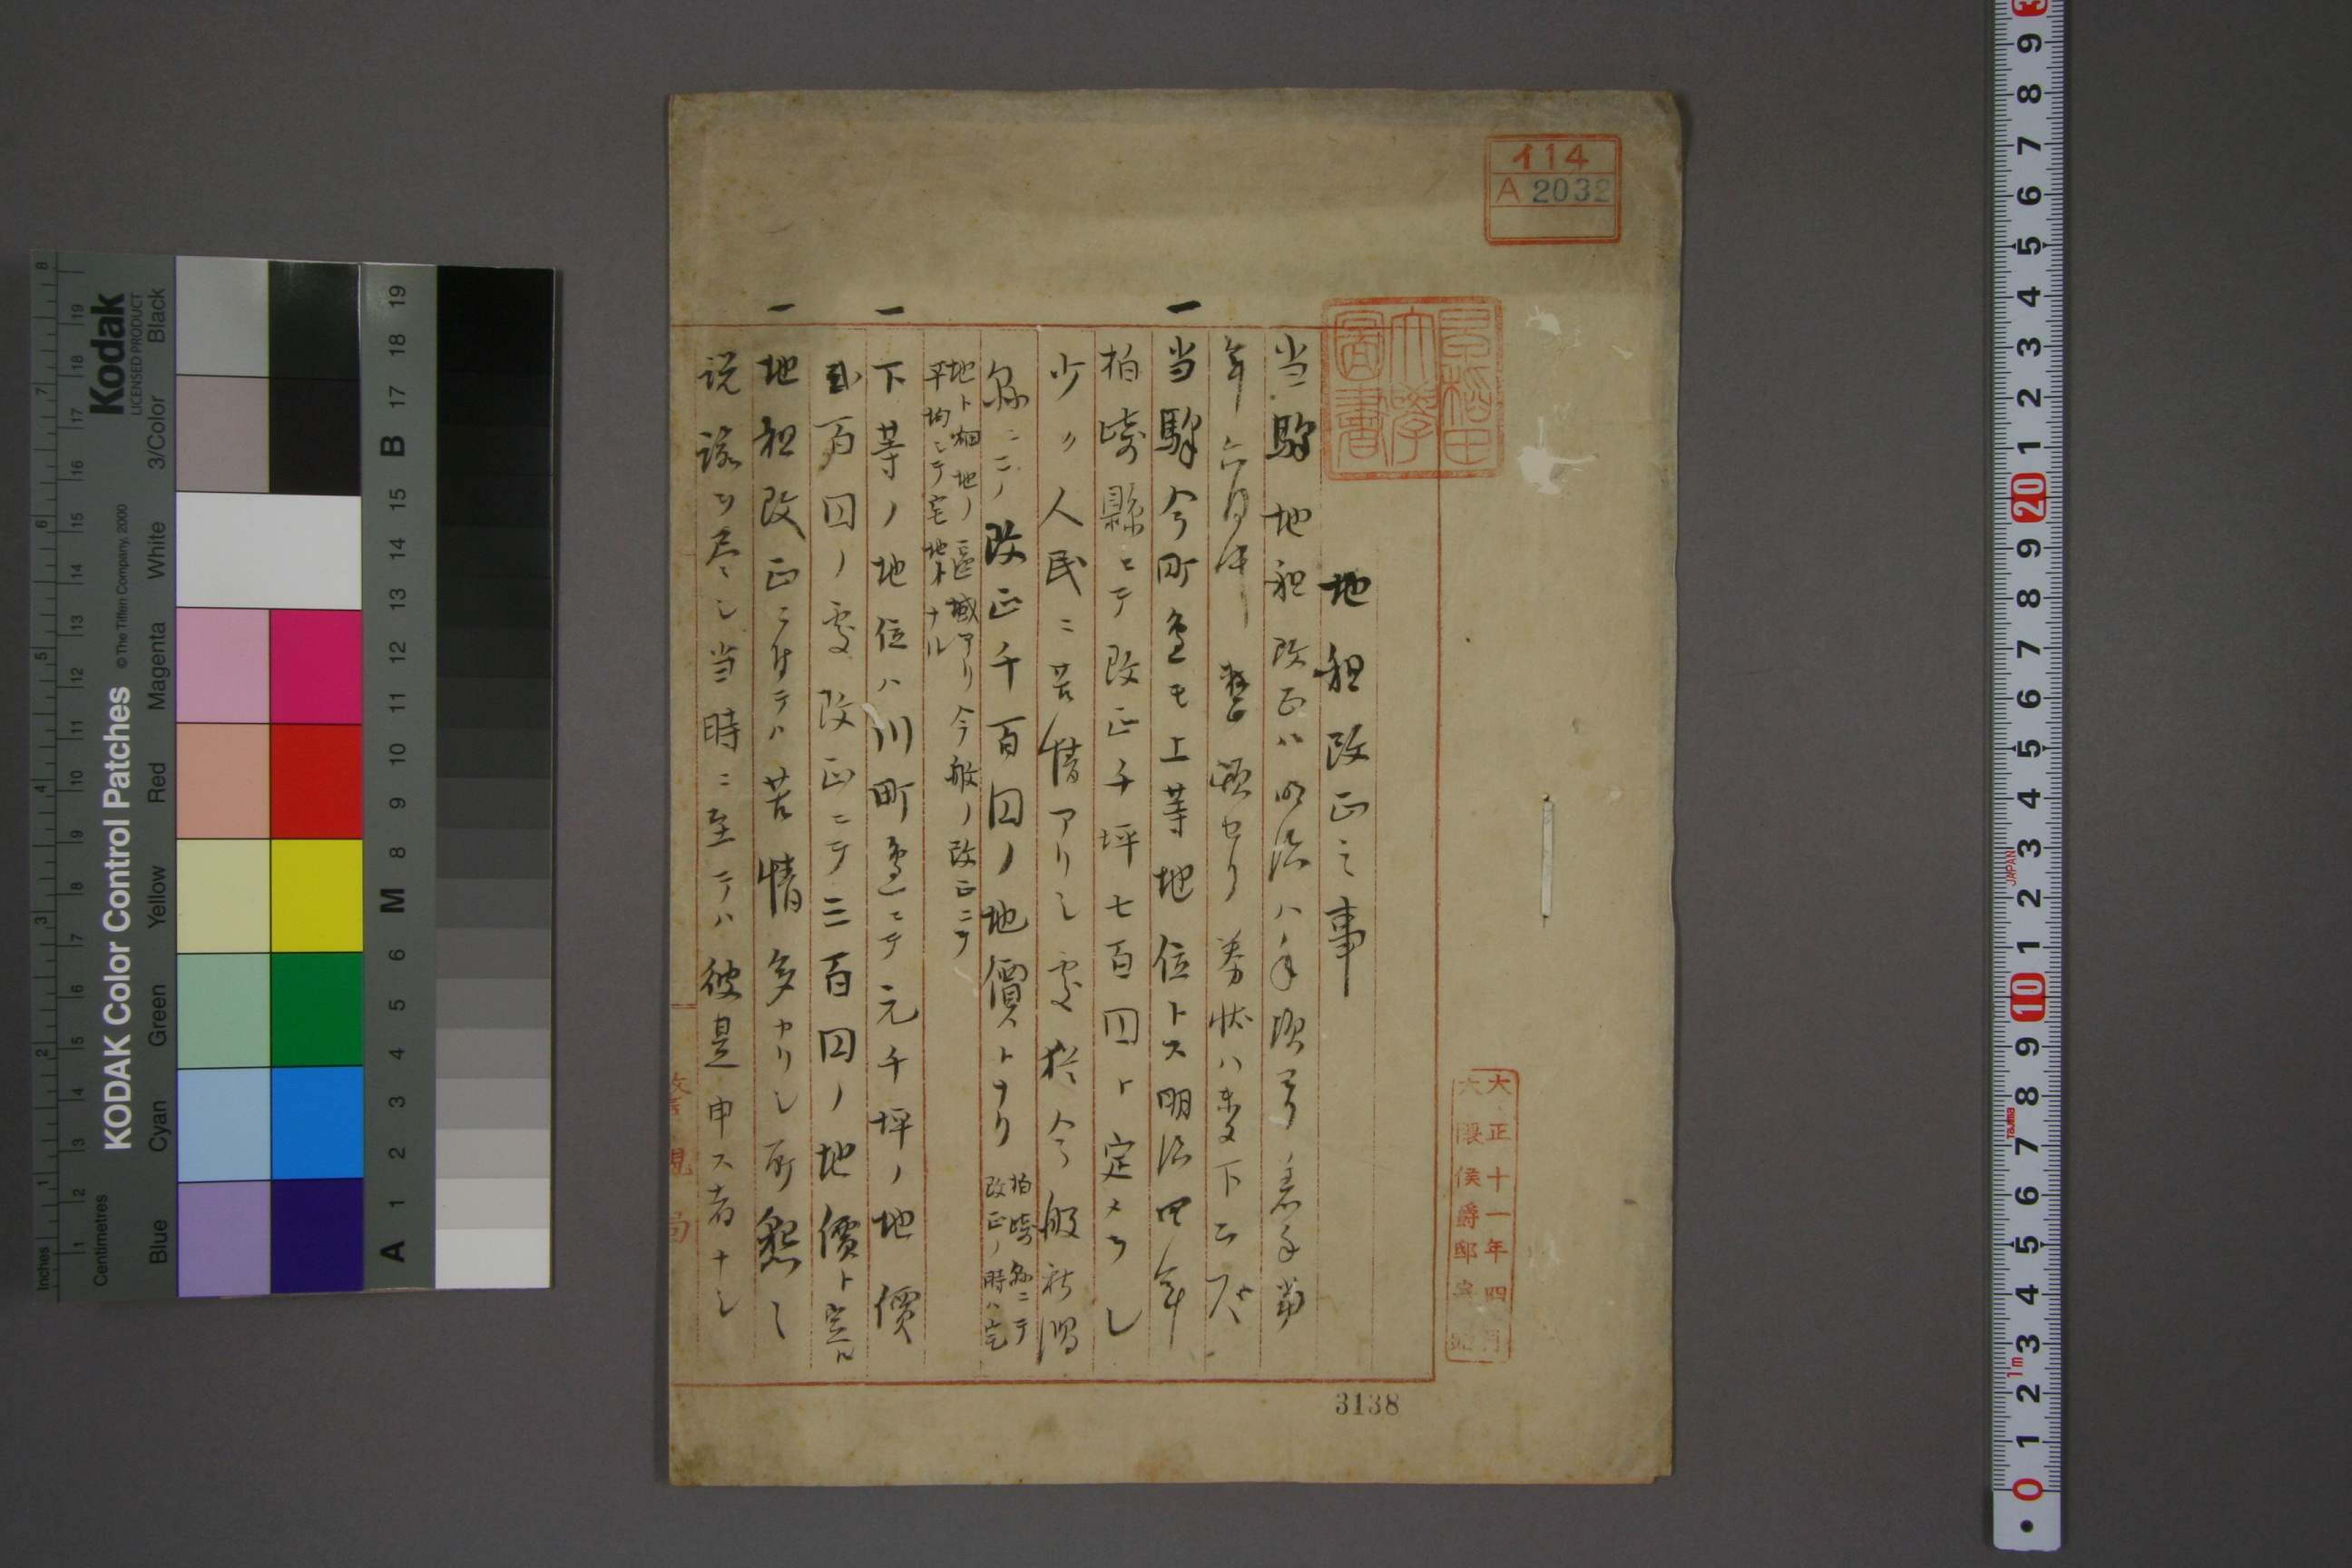 イ14
A 2032
早稲田大學圖書
大正十一年四月
大隈侯爵邸寄贈
地租改正之事
当駅地租改正ハ明治八年
年六月 整頓セリ券状ハ未タ下ニ
一 当駅今町辺モ上等地位トス明治四年
柏崎縣ニテ改正千坪七百円ト定メラレ
少々人民ニ苦情アリシ処於今般新潟
縣ニ 改正千百円ノ地價トナリ 柏崎縣ニテ改正ノ時ハ宅
地ト畑地ノ區域アリ今般ノ改正ニテ
平均シテ宅地トナル
一 下等ノ地位ハ川町辺ニテ元千坪ノ地價
弐百円ノ処改正ニテ三百円ノ地價ト定ル
一 地租改正ニ付テハ苦情多カリシ所懇々
説諭ヲ尽シ当時ニ至テハ彼是申ス者ナシ
3138
KODAK Color Control Patches
© The Tiffen Company, 2000
Kodak
LICENSED PRODUCT
Inches
Centimetres
Blue
Cyan
Green
Yellow
Red
Magenta
White
3/Color
Black
A 1 2 3 4 5 6 M 8 9 10 11 12 13 14 15 B 17 18 19
JAPAN
Tajima
1m